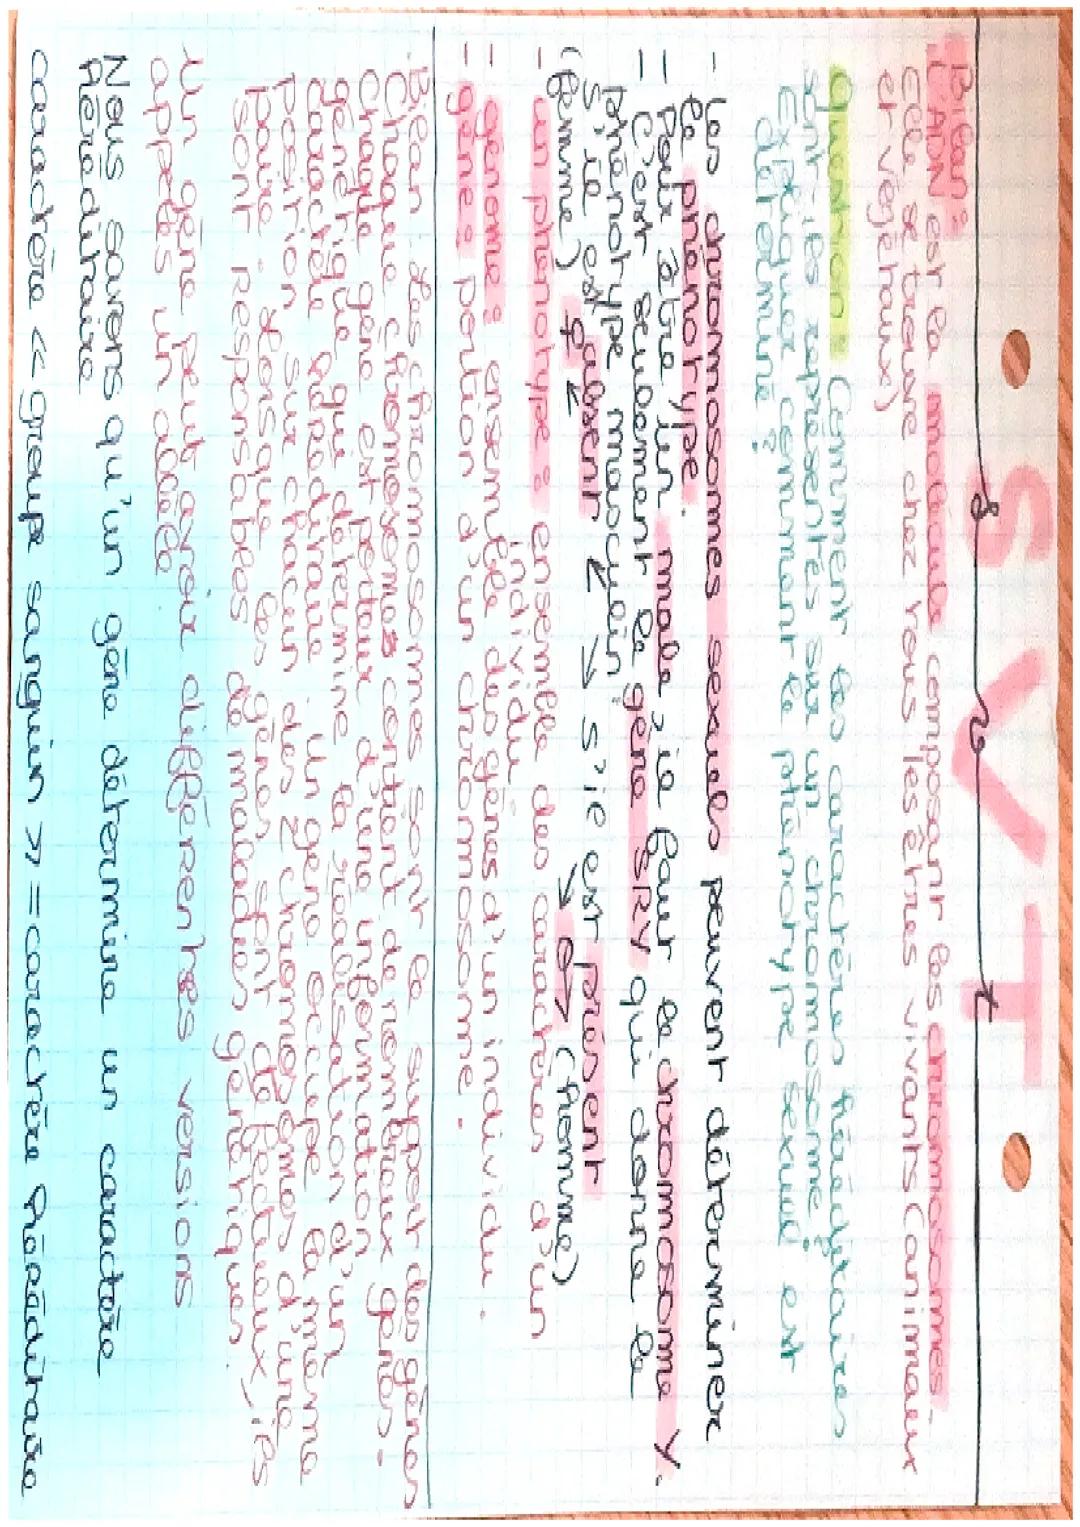 SVT
Svt
Bilan :
L'ADN est la molécule composant les chromosomes.
Elle se trouve chez tous les êtres vivants (animaux
et végétaux)
Question : Comment les caractères héréditaires
sont ils représentés sur un chromosome ?
Expliquer comment le phénotype sexuel est
déterminé ?
- Les chromosomes sexuels peuvent déterminer
le phénotype.
- Pour être un mâle il faut le chromosome Y.
- C'est seulement le gène SRY qui donne le
phénotype masculin.
S'il est absent ← → s'il est présent
(femme) ♀ ↙ ↘ ♂ (homme)
- un phénotype : ensemble des caractères d'un
individu
- genome : ensemble des gènes d'un individu.
- gène : portion d'un chromosome.
Bilan : Les chromosomes sont le support des gènes
Chaque chromosomes contient de nombreux gènes.
Chaque gène est porteur d'une information
génétique qui détermine la réalisation d'un
caractère héréditaire. Un gène occupe la même
position sur chacun des 2 chromosomes d'une
paire. Lorsque les gènes sont défectueux, ils
sont responsables de maladies génétiques.
Un gène peut avoir différentes versions
appelés un allèle
Nous savons qu'un gène détermine un caractère
héréditaire
caractère << groupe sanguin >> = caractère héréditaire